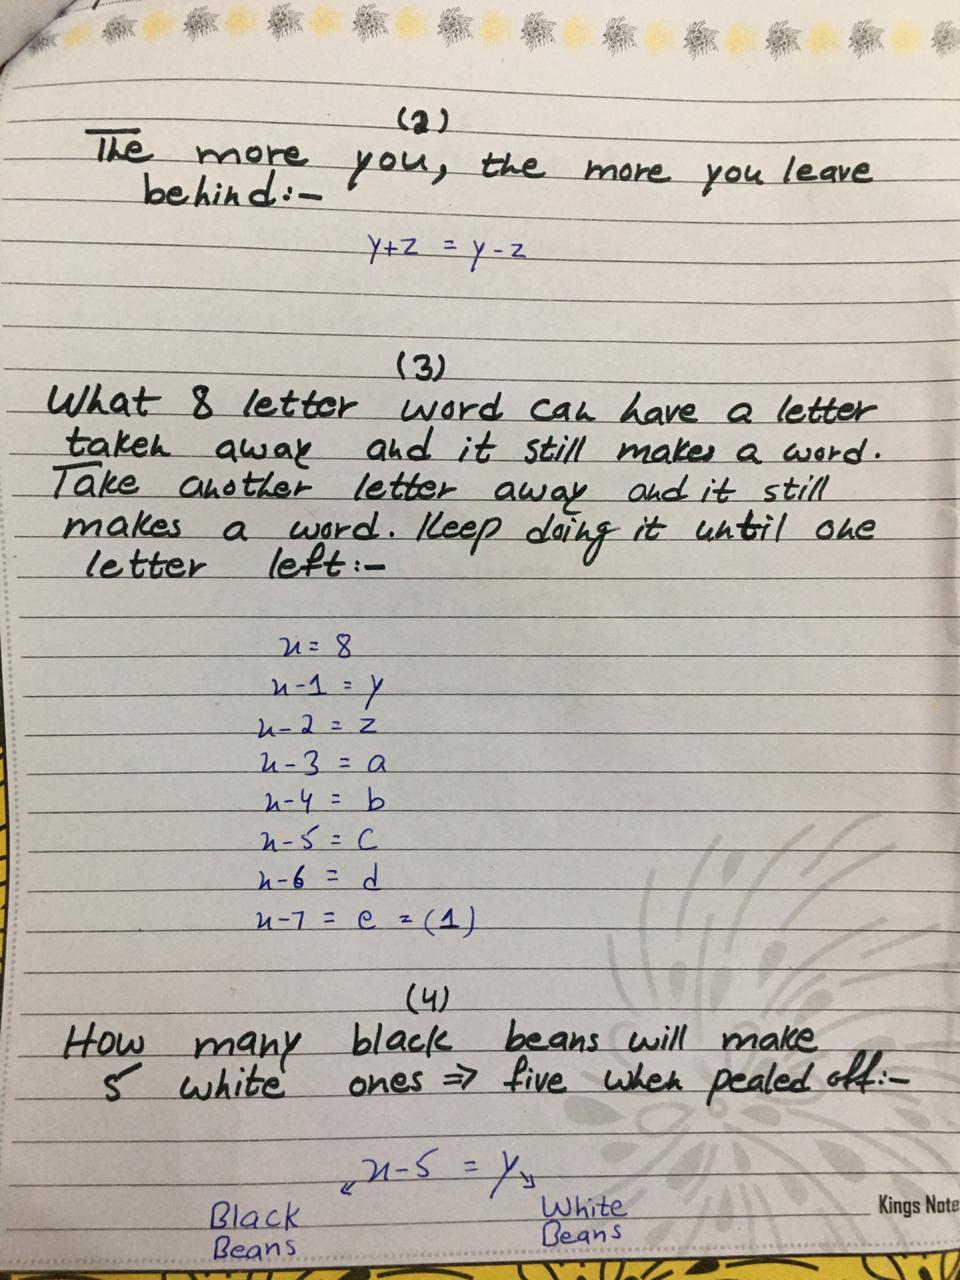 (2)
The more you, the more you leave
behind:-
y+z = y-z
(3)
What 8 letter word can have a letter
taken away and it still makes a word.
Take another letter away and it still
makes a word. Keep doing it until one
letter left:-
x = 8
x-1 = y
x-2 = z
x-3 = a
x-4 = b
x-5 = c
x-6 = d
x-7 = e = (1)
(4)
How many black beans will make
5 white ones ⇒ five when pealed off:-
x-5 = y
Black
Beans
White
Beans
Kings Note